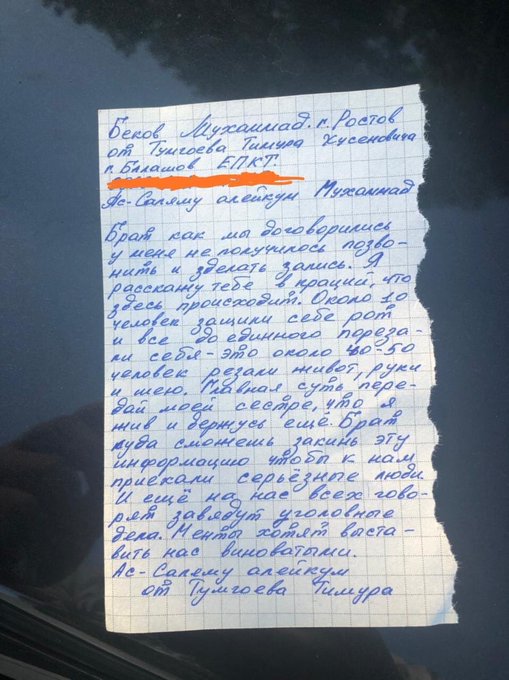 Беков Мухаммад. г. Ростов
от Тумгоева Тимура Хусеновича
г. Баллашов ЕПКТ.
Ас-Саляму алейкум Мухаммад
Брат как мы договорились
у меня не получилось позво-
нить и зделать запись. Я
расскажу тебе в краций, что
здесь происходит. Около 10
человек зашили себе рот
и все до единного пореза-
ли себя - это около 40-50
человек резали живот, руки
и шею. Главная суть пере-
дай моей сестре, что я
жив и держусь ещё. Брат
куда сможешь закинь эту
информацию чтобы к нам
приехали серьёзные люди
И ещё на нас всех гово-
рят завядут уголовные
дела. Менты хотят выста-
вить нас виноватыми.
Ас-Саляму алейкум
от Тумгоева Тимура